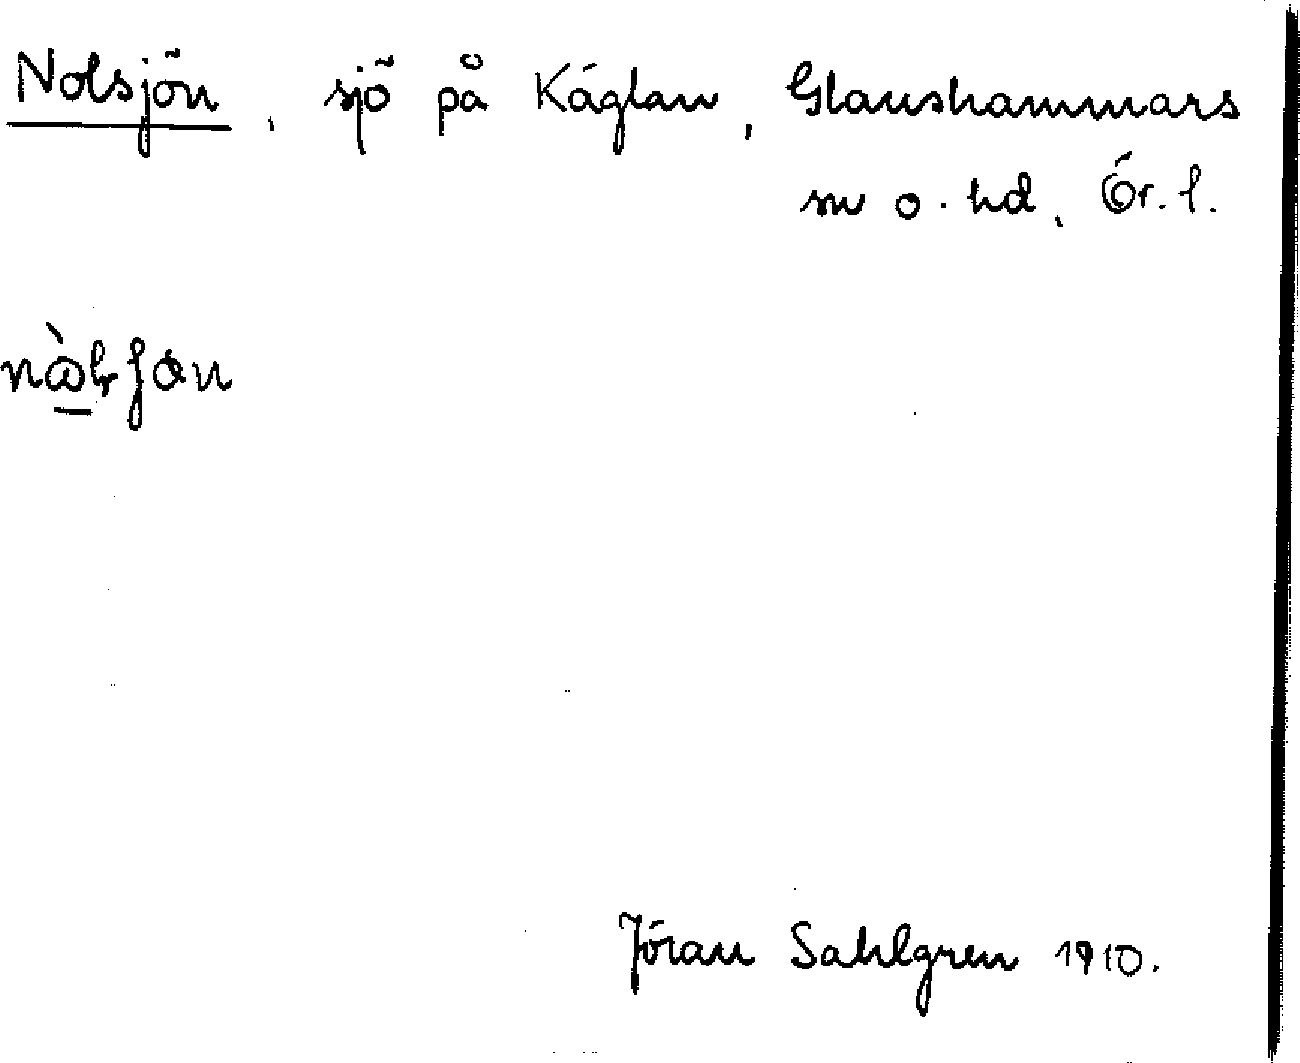 Nolsjön, sjö på Käglan, Glanshammars
sn o. hd, Ör. l.
Jöran Sahlgren 1910.